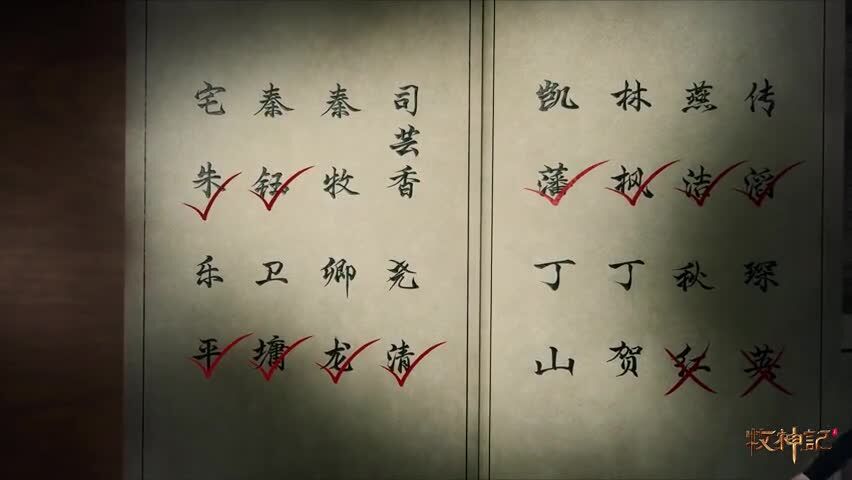 传滔
燕洁
林枫
凯藩
琛英
秋红
丁贺
丁山
司芸香
秦牧
秦钰
宅朱
尧清
卿龙
卫墉
乐平
牧神記